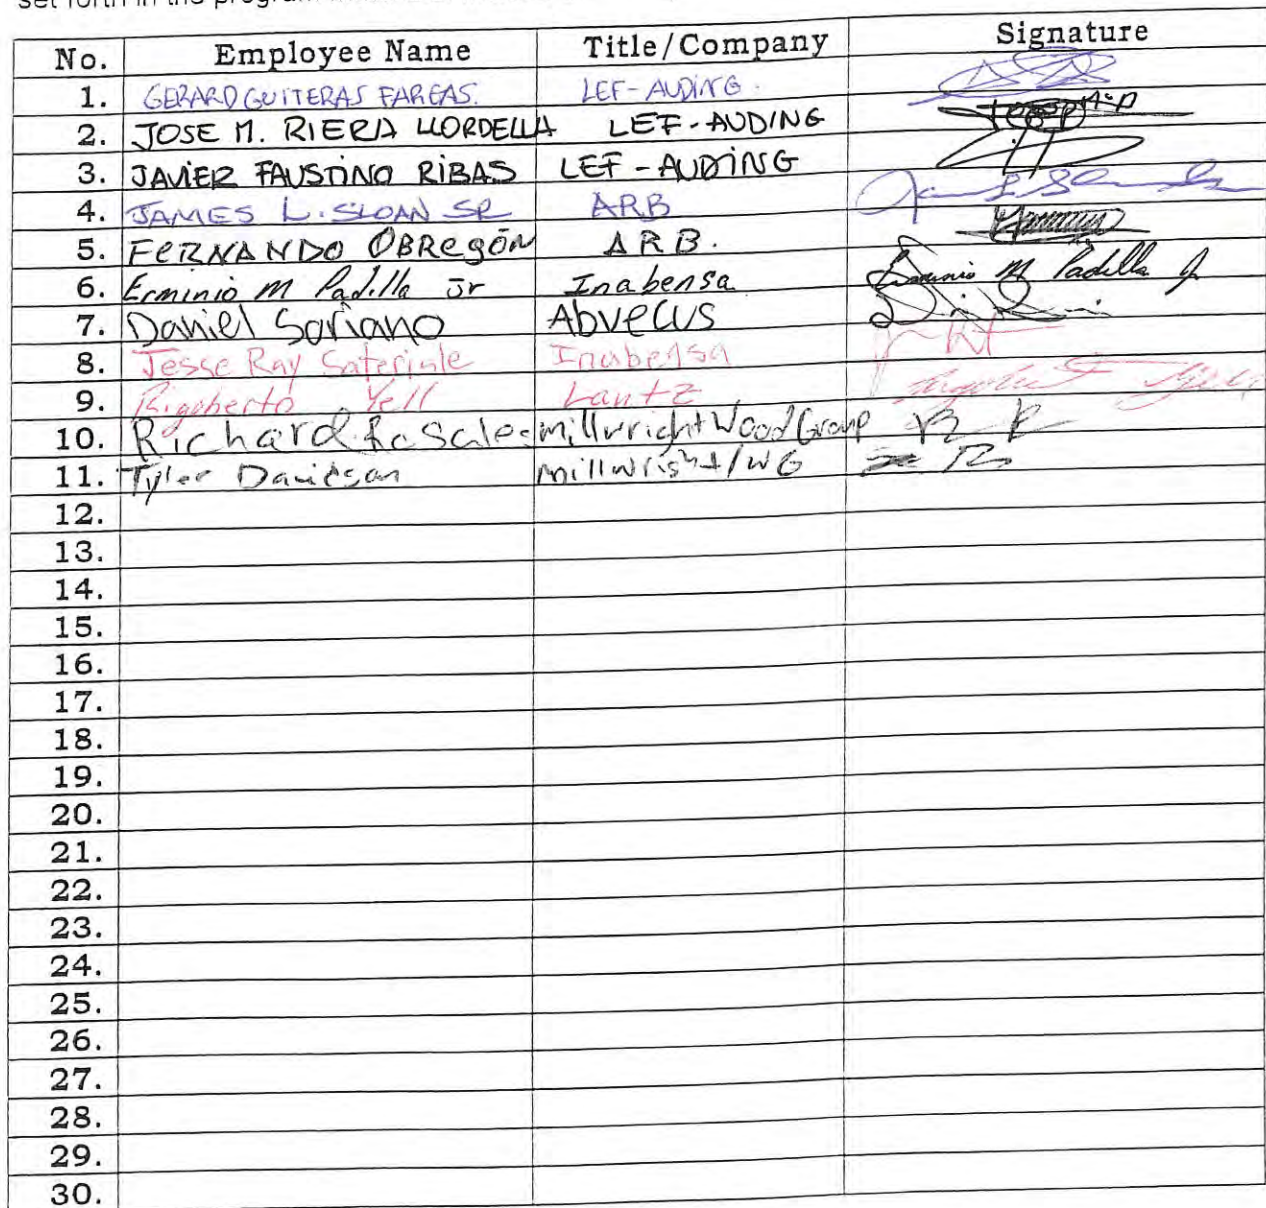 set forth in the program
No. Employee Name Title/Company Signature
1. GERARD GUITERAS FAREAS. LEF-AUDING.
2. JOSE M. RIERA LLORDELLA LEF-AUDING
3. JAVIER FAUSTINO RIBAS LEF-AUDING
4. JAMES L. SLOAN SR ARB
5. FERNANDO OBREGÓN ARB.
6. Erminio M Padilla Jr Inabensa Erminio M Padilla Jr
7. Daniel Soriano Abvecus
8. Jesse Ray Inabensa
9. Rigoberto Yell Lantz
10. Richard Millwright Wood Group
11. Tyler Davidson Millwright/WG
12.
13.
14.
15.
16.
17.
18.
19.
20.
21.
22.
23.
24.
25.
26.
27.
28.
29.
30.